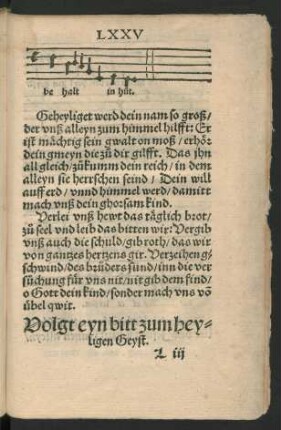 LXXV
be halt in hůt.
Geheyliget werd dein nam so groß/
der vnß alleyn zum himmel hilfft: Er
ist mächtig sein gwalt on moß/ erhör
dein gmeyn die zů dir gilfft. Das jhn
all gleich/ zůkumm dein reich/ in dem
alleyn sie herrschen seind/ Dein will
auff erd/ vnnd himmel werd/ damitt
mach vnß dein ghorsam kind.
Verlei vnß hewt das täglich brot/
zů seel vnd leib das bitten wir: Vergib
vnß auch die schuld/ gib roth/ das wir
von gantzes hertzens gir. Verzeihen g-
schwind/ des brůders sund/ inn die ver
sůchung für vns nit/ nit gib dem kind/
o Gott dein kind/ sonder mach vns vō
übel qwit.
Volgt eyn bitt zum hey-
ligen Geyst.
L iij